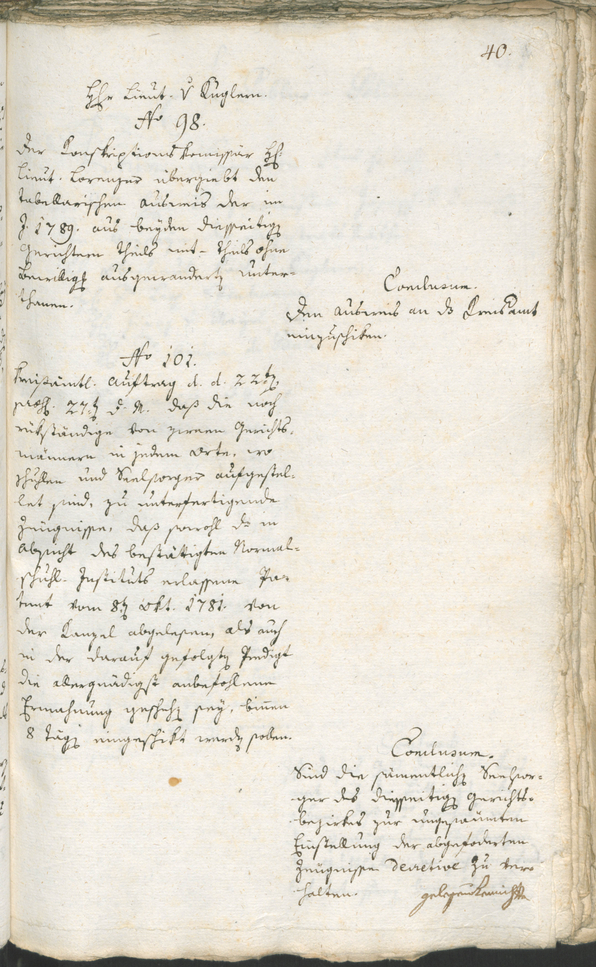 40.
Hr Lieut. v Kuglern.
No 98.
Der Konskriptionskomissär Hr
Lieut. Lorenzer übergiebt den
tabellarischen Ausweis der im
J. 1789. aus beyden diesseitig
Gerichtern theils mit- theils ohne
Bewillig ausgewanderten unter-
thanen.
Conclusum.
Den Ausweis an ds Kreisamt
einzuschiken.
No 101.
Kreisämtl. Auftrag d. d. 22t
praes. 27t d. M. daß die noch
rükständige von zween Gerichts-
männern in jedem Orte, wo
schulen und Seelsorger aufgestel-
let sind, zu unterfertigende
Zeugnisse, daß sowohl ds in
Absicht des bestättigten Normal-
schul- Instituts erlassene Pa-
tent vom 8t Okt. 1781. von
der Kanzel abgelesen, als auch
in der darauf gefolgten Predigt
die allergnädigst anbefohlene
Ermahnung geschehen sey, binnen
8 Tägen eingeschikt werden sollen.
Conclusum.
Sind die sämentliche Seelsor-
ger des diesseitigen Gerichts-
bezirkes zur ungesäumten
Einstellung der abgeforderten
Zeugnisse decretive zu ver-
halten.